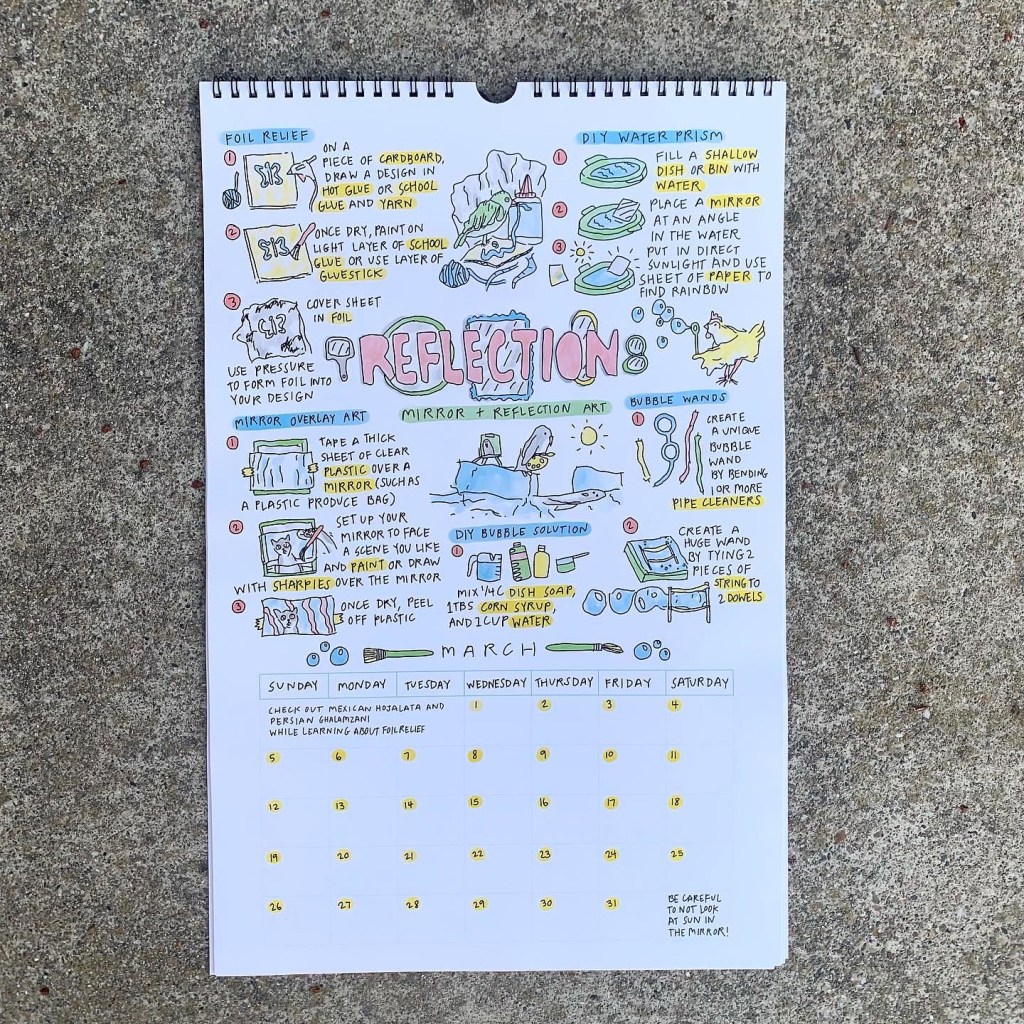 FOIL RELIEF
1
ON A
PIECE OF CARDBOARD,
DRAW A DESIGN IN
HOT GLUE OR SCHOOL
GLUE AND YARN
2
ONCE DRY, PAINT ON
LIGHT LAYER OF SCHOOL
GLUE OR USE LAYER OF
GLUESTICK
3
COVER SHEET
IN FOIL
USE PRESSURE
TO FORM FOIL INTO
YOUR DESIGN
DIY WATER PRISM
1
FILL A SHALLOW
DISH OR BIN WITH
WATER
2
PLACE A MIRROR
AT AN ANGLE
IN THE WATER
3
PUT IN DIRECT
SUNLIGHT AND USE
SHEET OF PAPER TO
FIND RAINBOW
REFLECTION
MIRROR + REFLECTION ART
MIRROR OVERLAY ART
1
TAPE A THICK
SHEET OF CLEAR
PLASTIC OVER A
MIRROR (SUCH AS
A PLASTIC PRODUCE BAG)
2
SET UP YOUR
MIRROR TO FACE
A SCENE YOU LIKE
AND PAINT OR DRAW
WITH SHARPIES OVER THE MIRROR
3
ONCE DRY, PEEL
OFF PLASTIC
DIY BUBBLE SOLUTION
1
MIX 1/4C DISH SOAP,
1TBS CORN SYRUP,
AND 1 CUP WATER
BUBBLE WANDS
1
CREATE
A UNIQUE
BUBBLE
WAND
BY BENDING
1 OR MORE
PIPE CLEANERS
2
CREATE A
HUGE WAND
BY TYING 2
PIECES OF
STRING TO
2 DOWELS
MARCH
SUNDAY MONDAY TUESDAY WEDNESDAY THURSDAY FRIDAY SATURDAY
CHECK OUT MEXICAN HOJALATA AND
PERSIAN GHALAMZANI
WHILE LEARNING ABOUT FOIL RELIEF
1 2 3 4
5 6 7 8 9 10 11
12 13 14 15 16 17 18
19 20 21 22 23 24 25
26 27 28 29 30 31
BE CAREFUL
TO NOT LOOK
AT SUN IN
THE MIRROR!